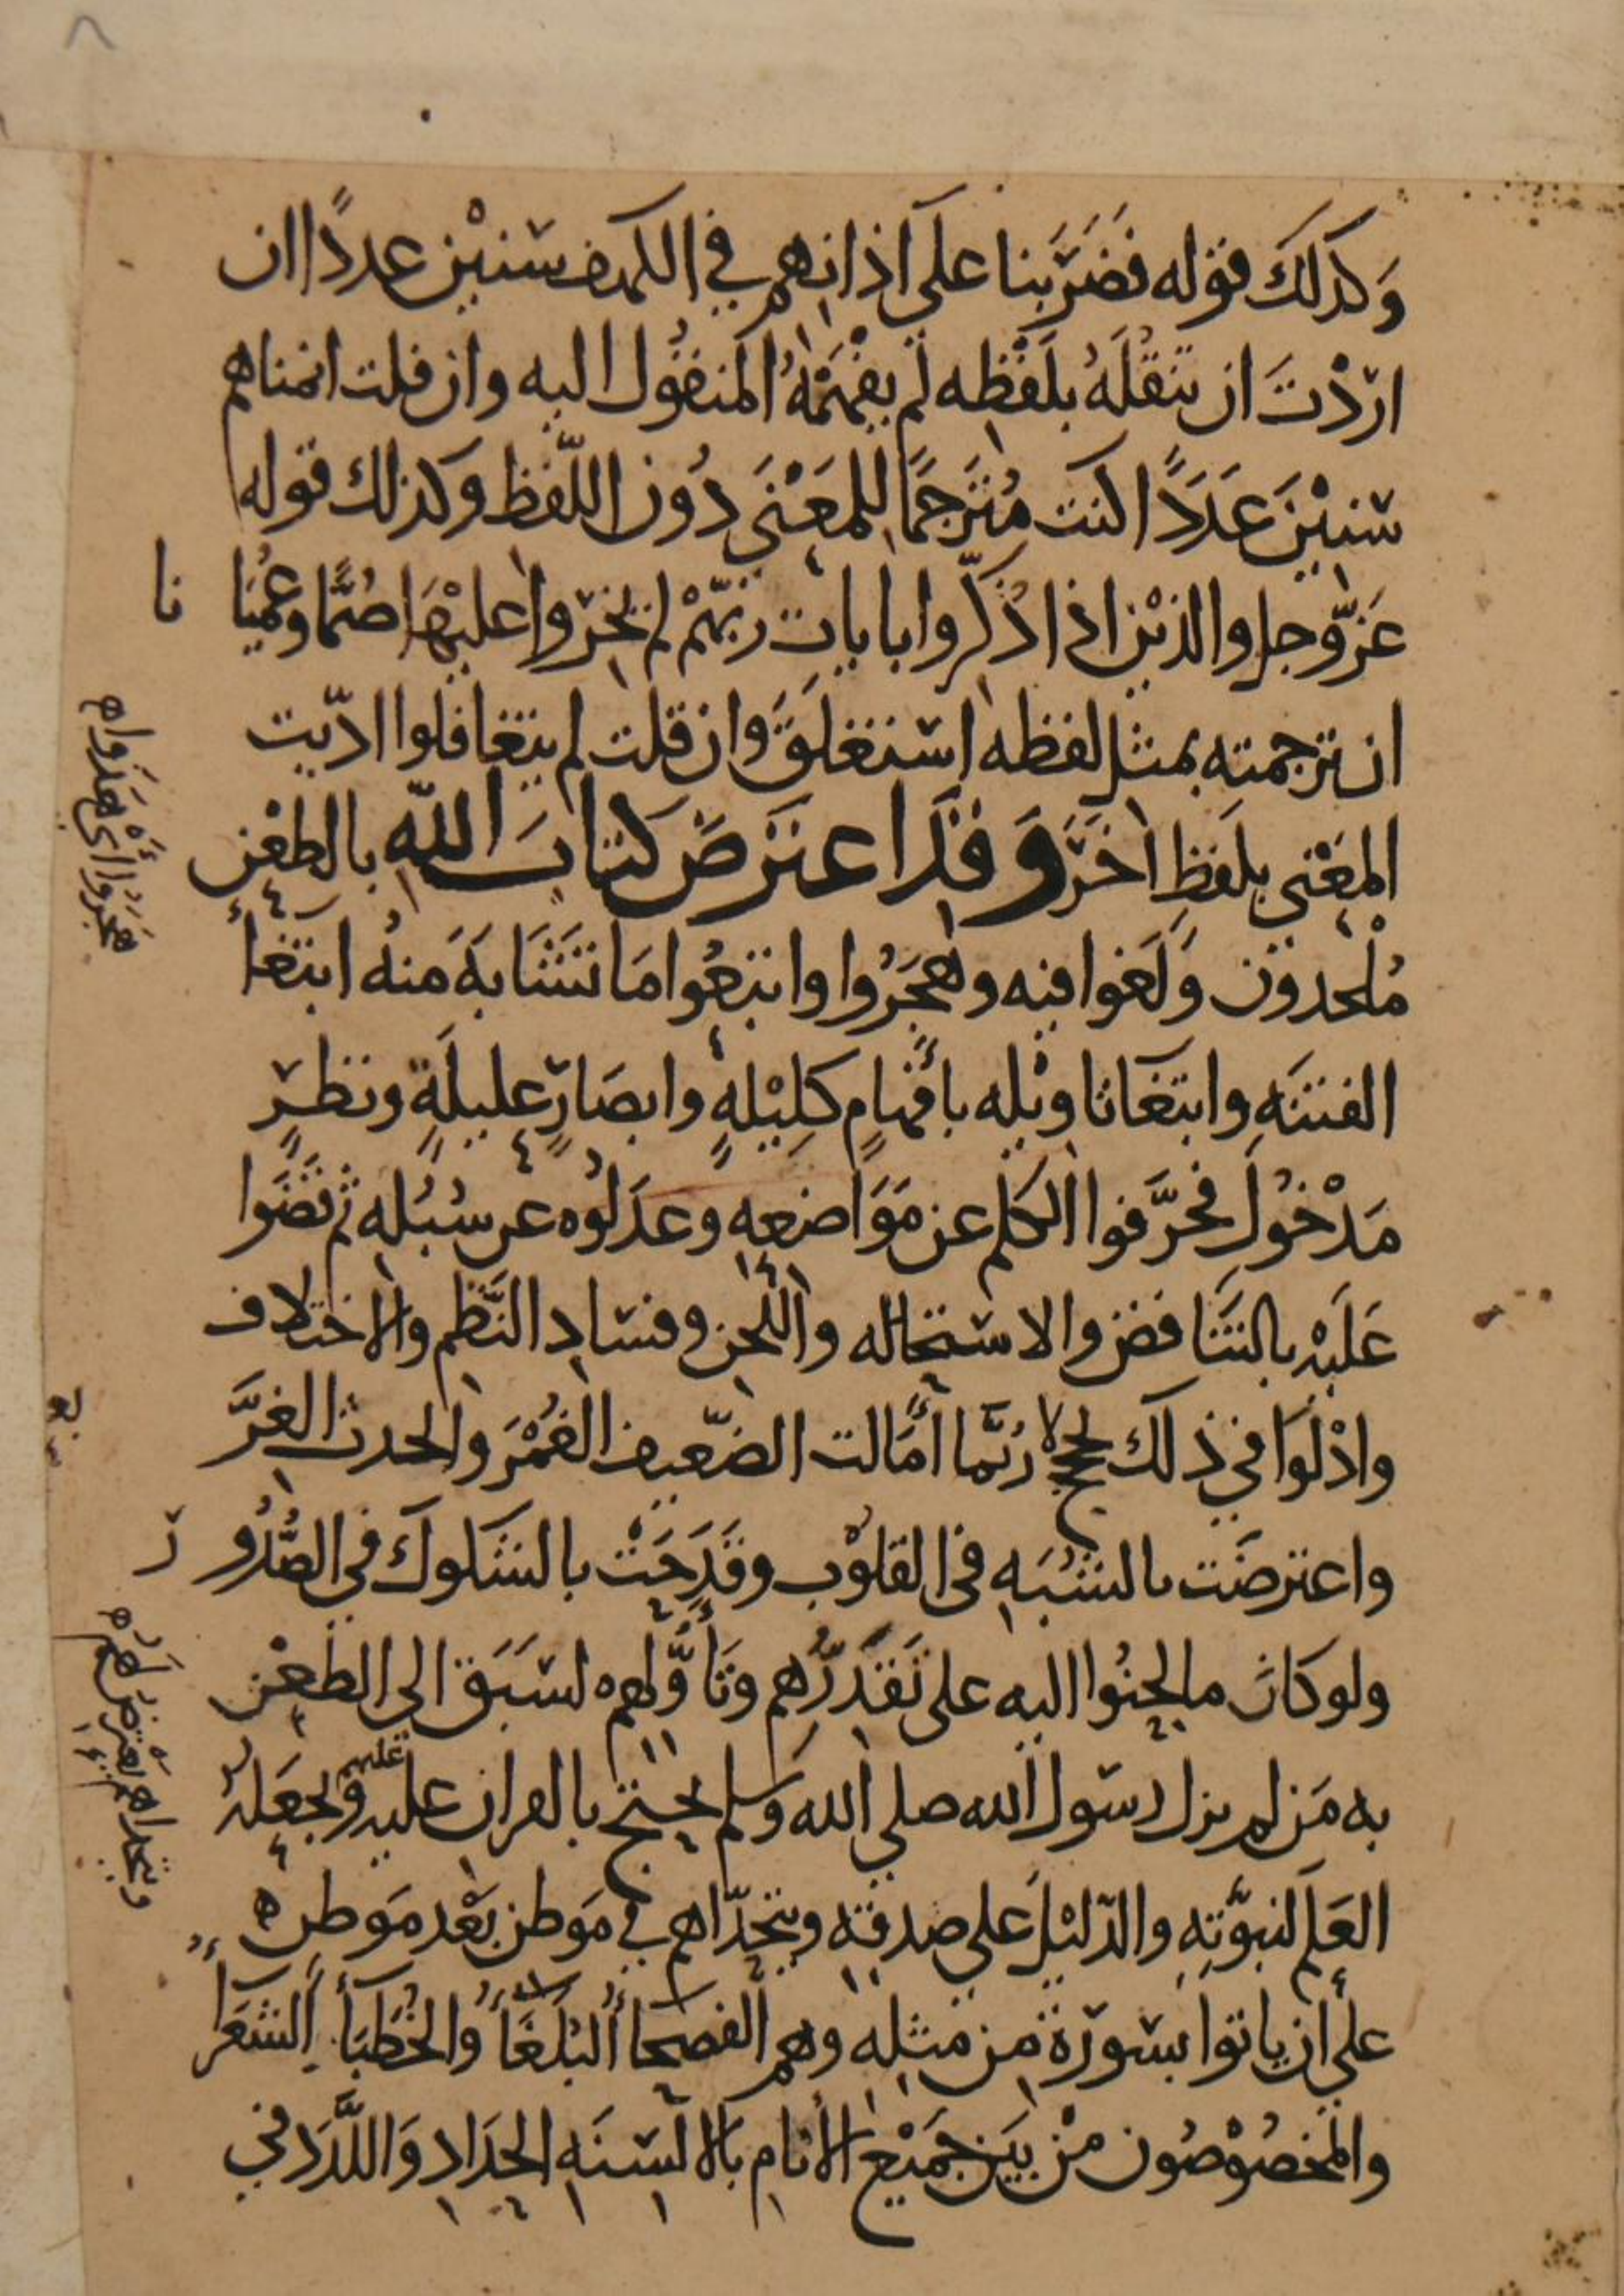 وكذلك قوله فضربنا على آذانهم في الكهف سنين عددًا ان
اردْتَ ان تنقلَهُ بلَفْظه لم يفهَمْهُ المنقُول اليه وان قلت انمناهم
سنيْنَ عَدَدًا كنت مُتَرجمًا للمَعْنَى دُون اللّفظ وكذلك قوله
عَزّ وجل والذيْن اذا ذُكّروا بايات ربّهمْ لم يخرّوا عليْهَا صُمًّا وعُميَا نا
ان ترجمته بمثل لفظه استغلَقَ وان قلت لم يتغافلوا ادّيت
المعْنى بلَفظٍ اخَرَ وَقد اعترضَ كتابَ الله بالطعْن
مُلْحدون وَلَغوا فيه وهَجَرُوا واتبعُوا مَا تَشَابَهَ منهُ ابتغأ
الفتنَهِ وابتغَا تاويْله بأفْهَامٍ كَلِيْلهٍ وابصَارٍ عليلَةٍ ونظرٍ
مَدْخُول فحرَّفوا الكلم عن مَوَاضعهِ وعدَلُوه عن سُبُله ثم قضَوا
عَلَيْه بالتَنَاقض والاستحاله واللحن وفسَاد النَّظم والاختلاف
وادْلَوا في ذلك بحججٍ ربّما أمَالت الضّعيف الغُمْرَ والحدث الغرَّ
واعترضَت بالشُبَهِ في القلوْب وقَدَحَتْ بالشكوك في الصُّدُو ر
ولو كان ما لحنُوا اليه على تَقدرُهم وتأوُّلهم لسَبَق الى الطعْن
به مَن لم يزل رسول الله صلى الله وسلم يحتج بالقران عليه عليهم ويجعَلهُ
العَلَم لنبوّته والدّليْلَ على صدقه ويتحدّاهم في مَوطن بَعْد مَوطن ه
على ان ياتوا بسورة من مثله وهم الفصحاأ البُلَغَاً والخُطَبَأ الشعَرَاً
والمخصُوْصُون منْ بيَن جمَيْع الأنام بالالسنَهِ الحدَادِ وَاللَّدَد في
هَجَرُوا أيْ هَذَواه
ويتحداهم يَعْترضُ لهُمْ ه